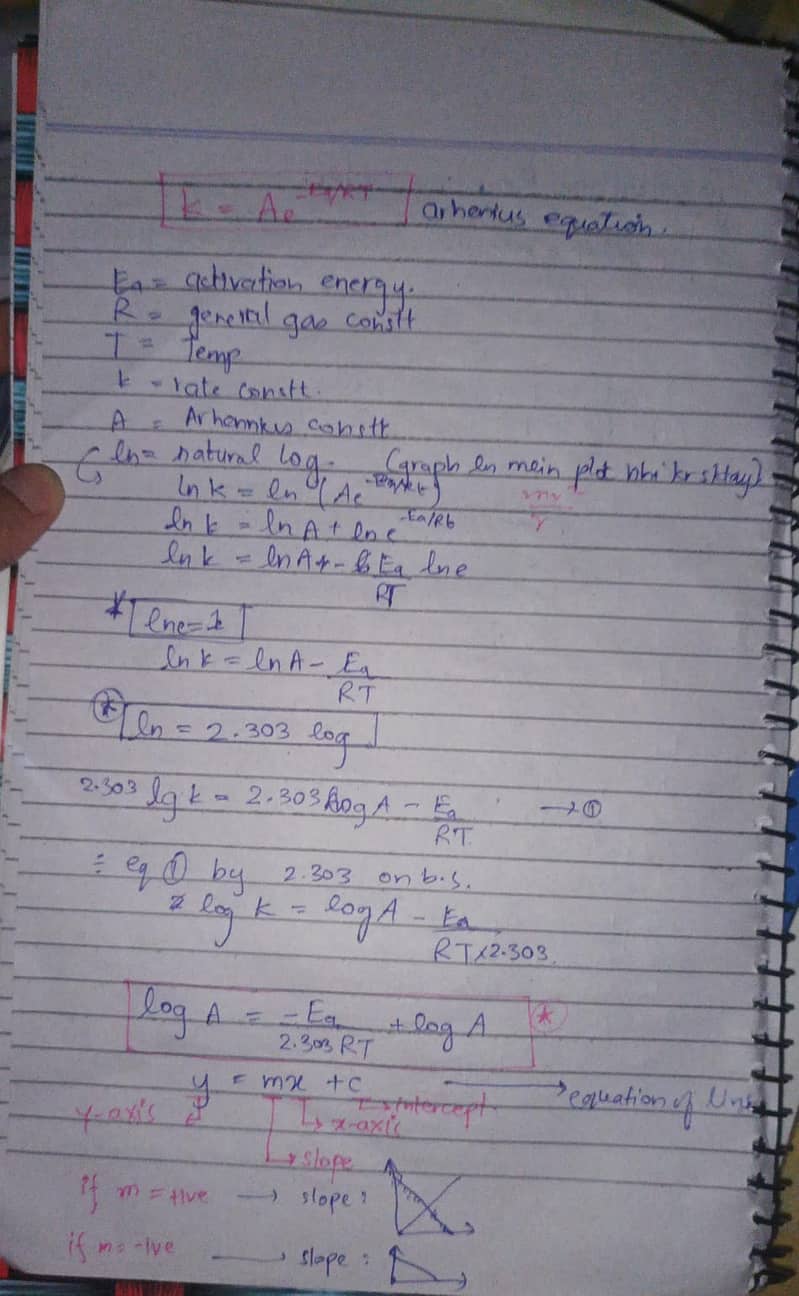 k = Ae^-Ea/RT arhenius equation.
Ea = activation energy.
R = general gas constt
T = Temp
k = rate constt.
A = Arhennius constt
ln = natural log. (graph ln mein plot nhi kr sktay)
ln k = ln (Ae^-Ea/Rt)
ln k = ln A + ln e^-Ea/Rt
ln k = ln A + - Ea/RT ln e
* ln e = 1
ln k = ln A - Ea/RT
* ln = 2.303 log
2.303 lg k = 2.303 log A - Ea/RT. → ①
÷ eq ① by 2.303 on b.s.
log k = log A - Ea/RT×2.303.
log A = -Ea/2.303 RT + log A *
y = mx + c → equation of line
y-axis x-axis intercept
slope
if m = +ive → slope :
if m = -ive → slope :